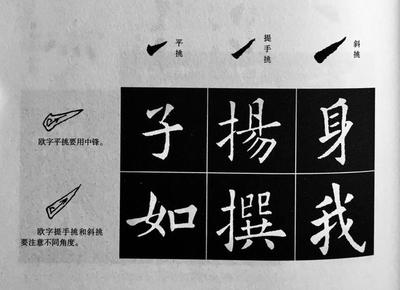 平挑
提手挑
斜挑
欧字平挑要用中锋。
子揚身
欧字提手挑和斜挑
要注意不同角度。
如撰我